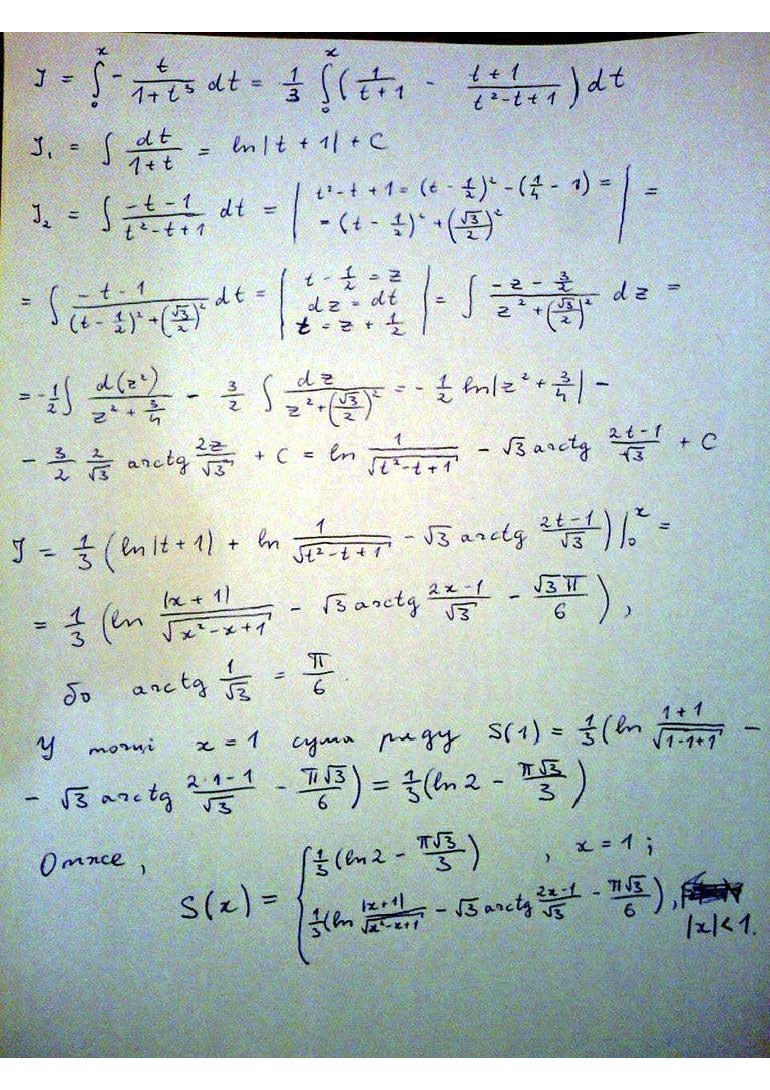 J = ∫₀ˣ - t/(1+t³) dt = 1/3 ∫₀ˣ (1/(t+1) - (t+1)/(t²-t+1)) dt
J₁ = ∫ dt/(1+t) = ln|t+1| + C
J₂ = ∫ (-t-1)/(t²-t+1) dt = | t²-t+1 = (t-1/2)² - (1/4 - 1) = = (t-1/2)² + (√3/2)² | =
= ∫ (-t-1)/((t-1/2)²+(√3/2)²) dt = | t-1/2 = z dz = dt t = z+1/2 | = ∫ (-z-3/2)/(z²+(√3/2)²) dz =
= -1/2 ∫ d(z²)/(z²+3/4) - 3/2 ∫ dz/(z²+(√3/2)²) = -1/2 ln|z²+3/4| -
- 3/2 2/√3 arctg 2z/√3 + C = ln 1/√(t²-t+1) - √3 arctg (2t-1)/√3 + C
J = 1/3 (ln|t+1| + ln 1/√(t²-t+1) - √3 arctg (2t-1)/√3)|₀ˣ =
= 1/3 (ln |x+1|/√(x²-x+1) - √3 arctg (2x-1)/√3 - √3π/6),
бо arctg 1/√3 = π/6.
У точці x = 1 сума ряду S(1) = 1/3 (ln (1+1)/√(1-1+1) -
- √3 arctg (2·1-1)/√3 - π√3/6) = 1/3 (ln 2 - π√3/3)
Отже,
S(x) = { 1/3 (ln 2 - π√3/3) , x = 1;
1/3 (ln |x+1|/√(x²-x+1) - √3 arctg (2x-1)/√3 - π√3/6), |x|<1.